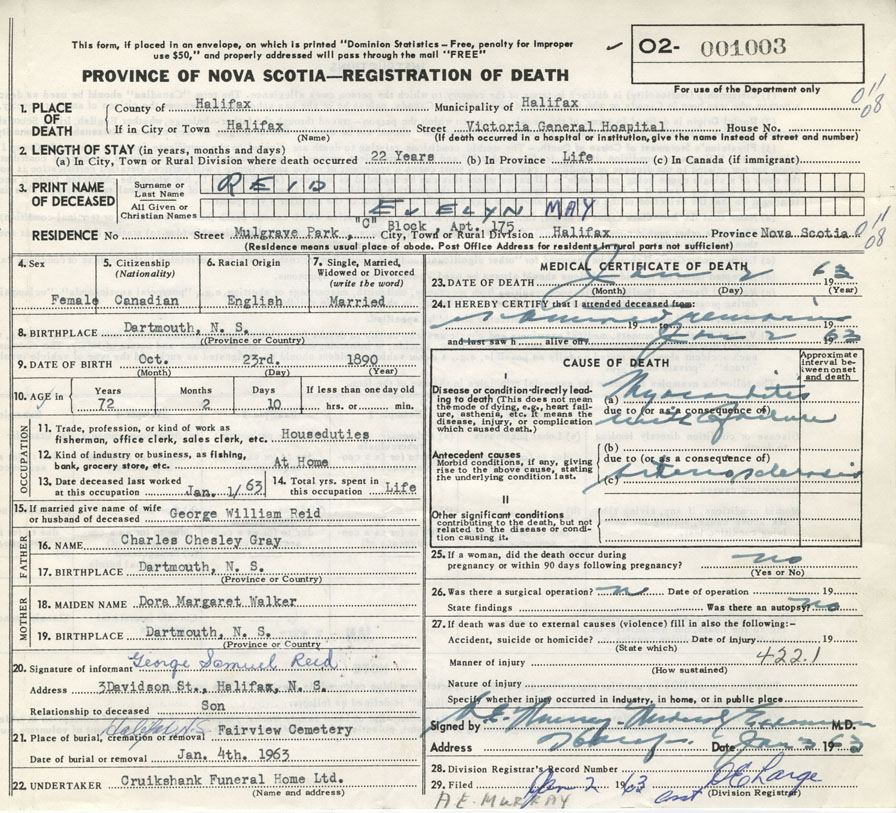 This form, if placed in an envelope, on which is printed "Dominion Statistics – Free, penalty for improper
use $50," and properly addressed will pass through the mail "FREE"
O2- 001003
PROVINCE OF NOVA SCOTIA—REGISTRATION OF DEATH
For use of the Department only
011
08
1. PLACE OF DEATH
County of Halifax Municipality of Halifax
If in City or Town Halifax Street Victoria General Hospital House No.
(Name) (If death occurred in a hospital or institution, give the name instead of street and number)
2. LENGTH OF STAY (in years, months and days)
(a) In City, Town or Rural Division where death occurred 22 Years (b) In Province Life (c) In Canada (if immigrant)
3. PRINT NAME OF DECEASED
Surname or Last Name REID
All Given or Christian Names EVELYN MAY
RESIDENCE No Street Mulgrave Park, "C" Block Apt. 175 City, Town or Rural Division Halifax Province Nova Scotia
011
08
(Residence means usual place of abode. Post Office Address for residents in rural parts not sufficient)
4. Sex
Female
5. Citizenship (Nationality)
Canadian
6. Racial Origin
English
7. Single, Married, Widowed or Divorced (write the word)
Married
8. BIRTHPLACE Dartmouth, N. S.
(Province or Country)
9. DATE OF BIRTH Oct. 23rd. 1890
(Month) (Day) (Year)
10. AGE in
Years Months Days If less than one day old
72 2 10 hrs. or min.
OCCUPATION
11. Trade, profession, or kind of work as
fisherman, office clerk, sales clerk, etc. Houseduties
12. Kind of industry or business, as fishing,
bank, grocery store, etc. At Home
13. Date deceased last worked
at this occupation Jan. 1/63
14. Total yrs. spent in
this occupation Life
15. If married give name of wife
or husband of deceased George William Reid
FATHER
16. NAME Charles Chesley Gray
17. BIRTHPLACE Dartmouth, N. S.
(Province or Country)
MOTHER
18. MAIDEN NAME Dora Margaret Walker
19. BIRTHPLACE Dartmouth, N. S.
(Province or Country
20. Signature of informant George Samuel Reid
Address 3Davidson St., Halifax, N. S.
Relationship to deceased Son
21. Place of burial, cremation or removal Halifax N.S Fairview Cemetery
Date of burial or removal Jan. 4th. 1963
22. UNDERTAKER Cruikshank Funeral Home Ltd.
(Name and address)
MEDICAL CERTIFICATE OF DEATH
23. DATE OF DEATH Jan 2 63
(Month) (Day) (Year)
24. I HEREBY CERTIFY that I attended deceased from:
examined remains
19 19
and last saw h alive on Jan 2 63
CAUSE OF DEATH
Approximate interval between onset and death
I
Disease or condition directly leading to death (This does not mean the mode of dying, e.g., heart failure, asthenia, etc. It means the disease, injury, or complication which caused death.)
(a) Myocarditis
due to (or as a consequence of)
with failure
Antecedent causes
Morbid conditions, if any, giving rise to the above cause, stating the underlying condition last.
(b)
due to (or as a consequence of)
(c) arteriosclerosis
II
Other significant conditions
contributing to the death, but not related to the disease or condition causing it.
25. If a woman, did the death occur during
pregnancy or within 90 days following pregnancy? no
(Yes or No)
26. Was there a surgical operation? no Date of operation 19
State findings Was there an autopsy? no
27. If death was due to external causes (violence) fill in also the following:–
Accident, suicide or homicide? Date of injury 19
(State which)
Manner of injury 422.1
(How sustained)
Nature of injury
Specify whether injury occurred in industry, in home, or in public place
Signed by A.E. Murray - Medical Examiner M.D.
Address Halifax Date Jan 3 1963
28. Division Registrar's Record Number
29. Filed Jan 2 1963
(Division Registrar)
A E MURRAY